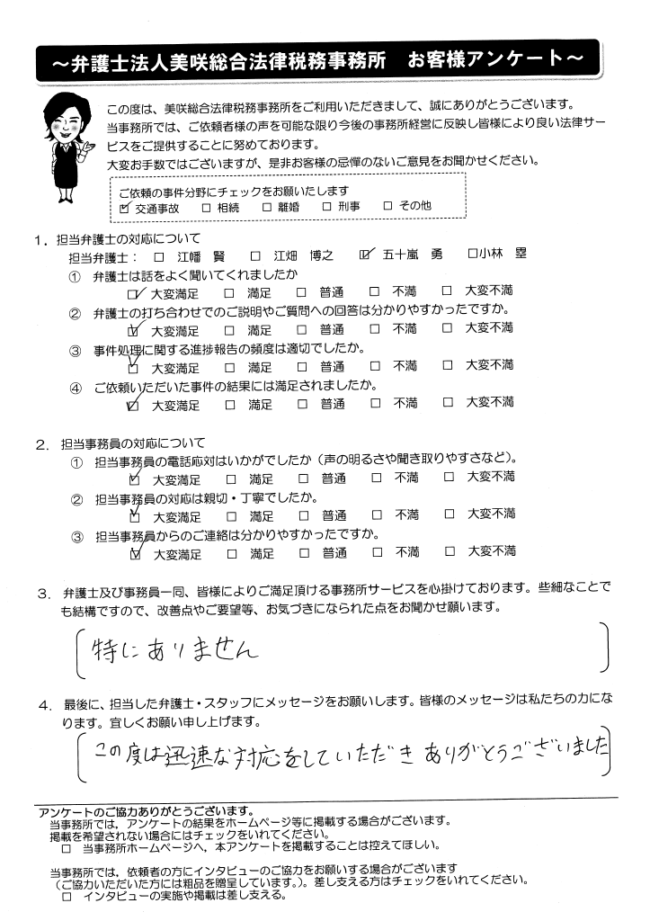 ～弁護士法人美咲総合法律税務事務所　お客様アンケート～
この度は、美咲総合法律税務事務所をご利用いただきまして、誠にありがとうございます。
当事務所では、ご依頼者様の声を可能な限り今後の事務所経営に反映し皆様により良い法律サー
ビスをご提供することに努めております。
大変お手数ではございますが、是非お客様の忌憚のないご意見をお聞かせください。
ご依頼の事件分野にチェックをお願いたします
☑ 交通事故　□ 相続　□ 離婚　□ 刑事　□ その他
1．担当弁護士の対応について
担当弁護士：　□　江幡　賢　　□　江畑　博之　　☑　五十嵐　勇　　□小林　塁
①　弁護士は話をよく聞いてくれましたか
☑　大変満足　□　満足　□　普通　□　不満　□　大変不満
②　弁護士の打ち合わせでのご説明やご質問への回答は分かりやすかったですか。
☑　大変満足　□　満足　□　普通　□　不満　□　大変不満
③　事件処理に関する進捗報告の頻度は適切でしたか。
☑　大変満足　□　満足　□　普通　□　不満　□　大変不満
④　ご依頼いただいた事件の結果には満足されましたか。
☑　大変満足　□　満足　□　普通　□　不満　□　大変不満
2．担当事務員の対応について
①　担当事務員の電話応対はいかがでしたか（声の明るさや聞き取りやすさなど）。
☑　大変満足　□　満足　□　普通　□　不満　□　大変不満
②　担当事務員の対応は親切・丁寧でしたか。
☑　大変満足　□　満足　□　普通　□　不満　□　大変不満
③　担当事務員からのご連絡は分かりやすかったですか。
☑　大変満足　□　満足　□　普通　□　不満　□　大変不満
3．弁護士及び事務員一同、皆様によりご満足頂ける事務所サービスを心掛けております。些細なことで
も結構ですので、改善点やご要望等、お気づきになられた点をお聞かせ願います。
特にありません
4．最後に、担当した弁護士・スタッフにメッセージをお願いします。皆様のメッセージは私たちの力にな
ります。宜しくお願い申し上げます。
この度は迅速な対応をしていただき ありがとうございました
アンケートのご協力ありがとうございます。
当事務所では、アンケートの結果をホームページ等に掲載する場合がございます。
掲載を希望されない場合にはチェックをいれてください。
□　当事務所ホームページへ、本アンケートを掲載することは控えてほしい。
当事務所では、依頼者の方にインタビューのご協力をお願いする場合がございます
（ご協力いただいた方には粗品を贈呈しています。）。差し支える方はチェックをいれてください。
□　インタビューの実施や掲載は差し支える。